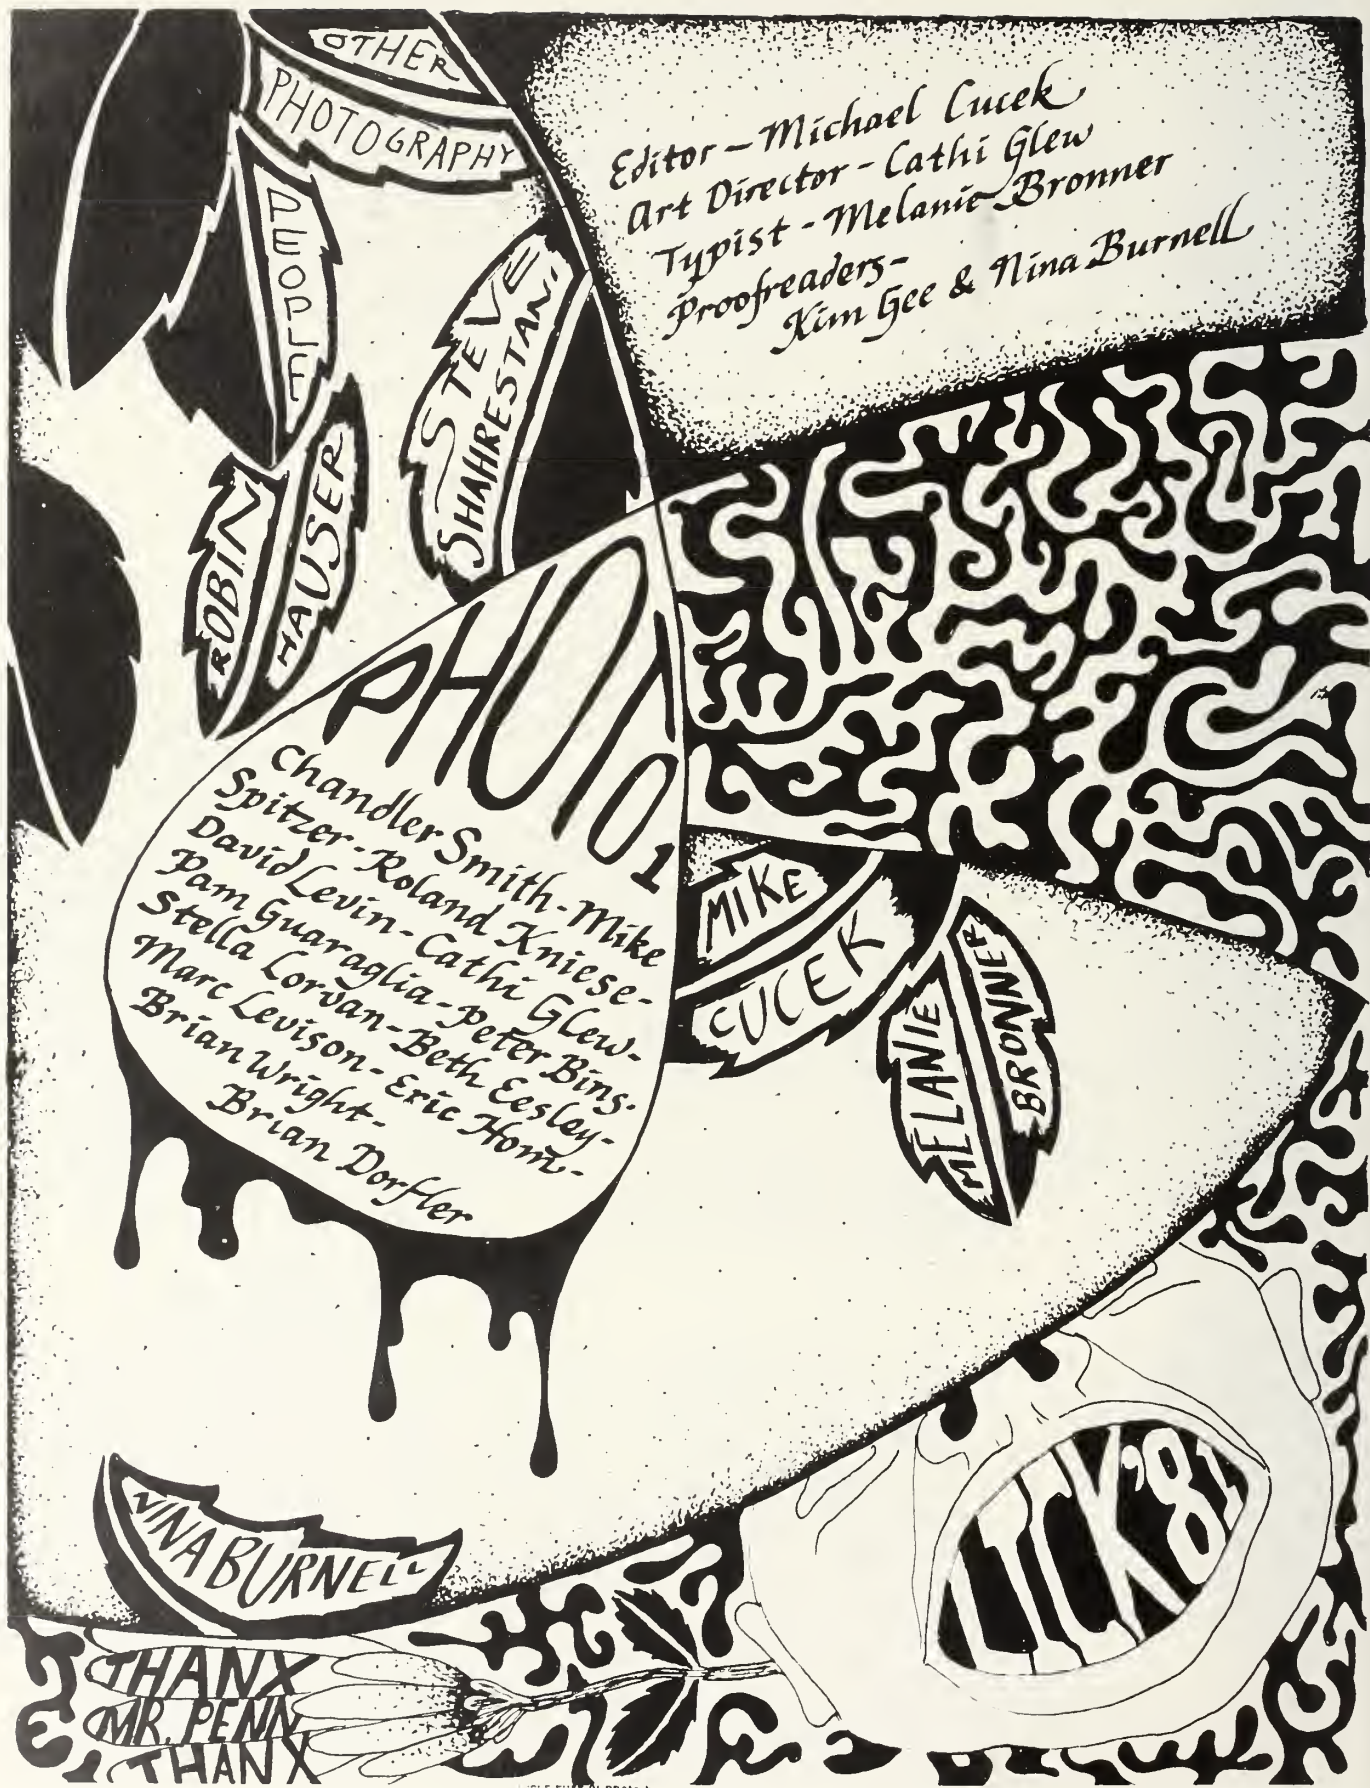 OTHER
PHOTOGRAPHY
PEOPLE
ROBIN
HAUSER
STEVE
SHAHRESTANI
Editor – Michael Cucek
Art Director - Cathi Glew
Typist - Melanie Bronner
Proofreaders -
Kim Gee & Nina Burnell
PHOTO 1
Chandler Smith - Mike
Spitzer - Roland Kniese -
David Levin - Cathi Glew -
Pam Guaraglia - Peter Bing.
Stella Lorvan - Beth Eesley -
Marc Levison - Eric Hom -
Brian Wright -
Brian Dorfler
MIKE
CUCEK
MELANIE
BRONNER
NINA BURNELL
LICK '81
THANX
MR. PENN
THANX